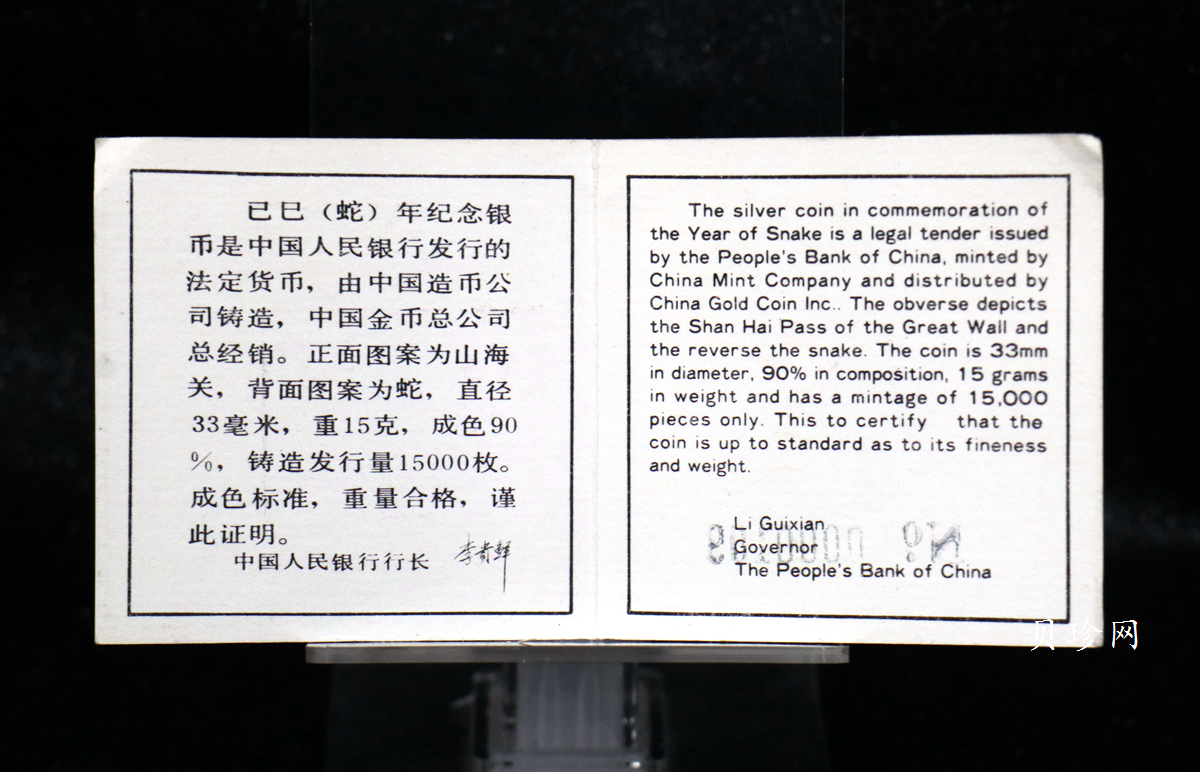 己巳（蛇）年纪念银
币是中国人民银行发行的
法定货币，由中国造币公
司铸造，中国金币总公司
总经销。正面图案为山海
关，背面图案为蛇，直径
33毫米，重15克，成色90
%，铸造发行量15000枚。
成色标准，重量合格，谨
此证明。
中国人民银行行长 李贵鲜
The silver coin in commemoration of
the Year of Snake is a legal tender issued
by the People's Bank of China, minted by
China Mint Company and distributed by
China Gold Coin Inc.. The obverse depicts
the Shan Hai Pass of the Great Wall and
the reverse the snake. The coin is 33mm
in diameter, 90% in composition, 15 grams
in weight and has a mintage of 15,000
pieces only. This to certify that the
coin is up to standard as to its fineness
and weight.
Li Guixian
Governor
The People's Bank of China
贝珍网